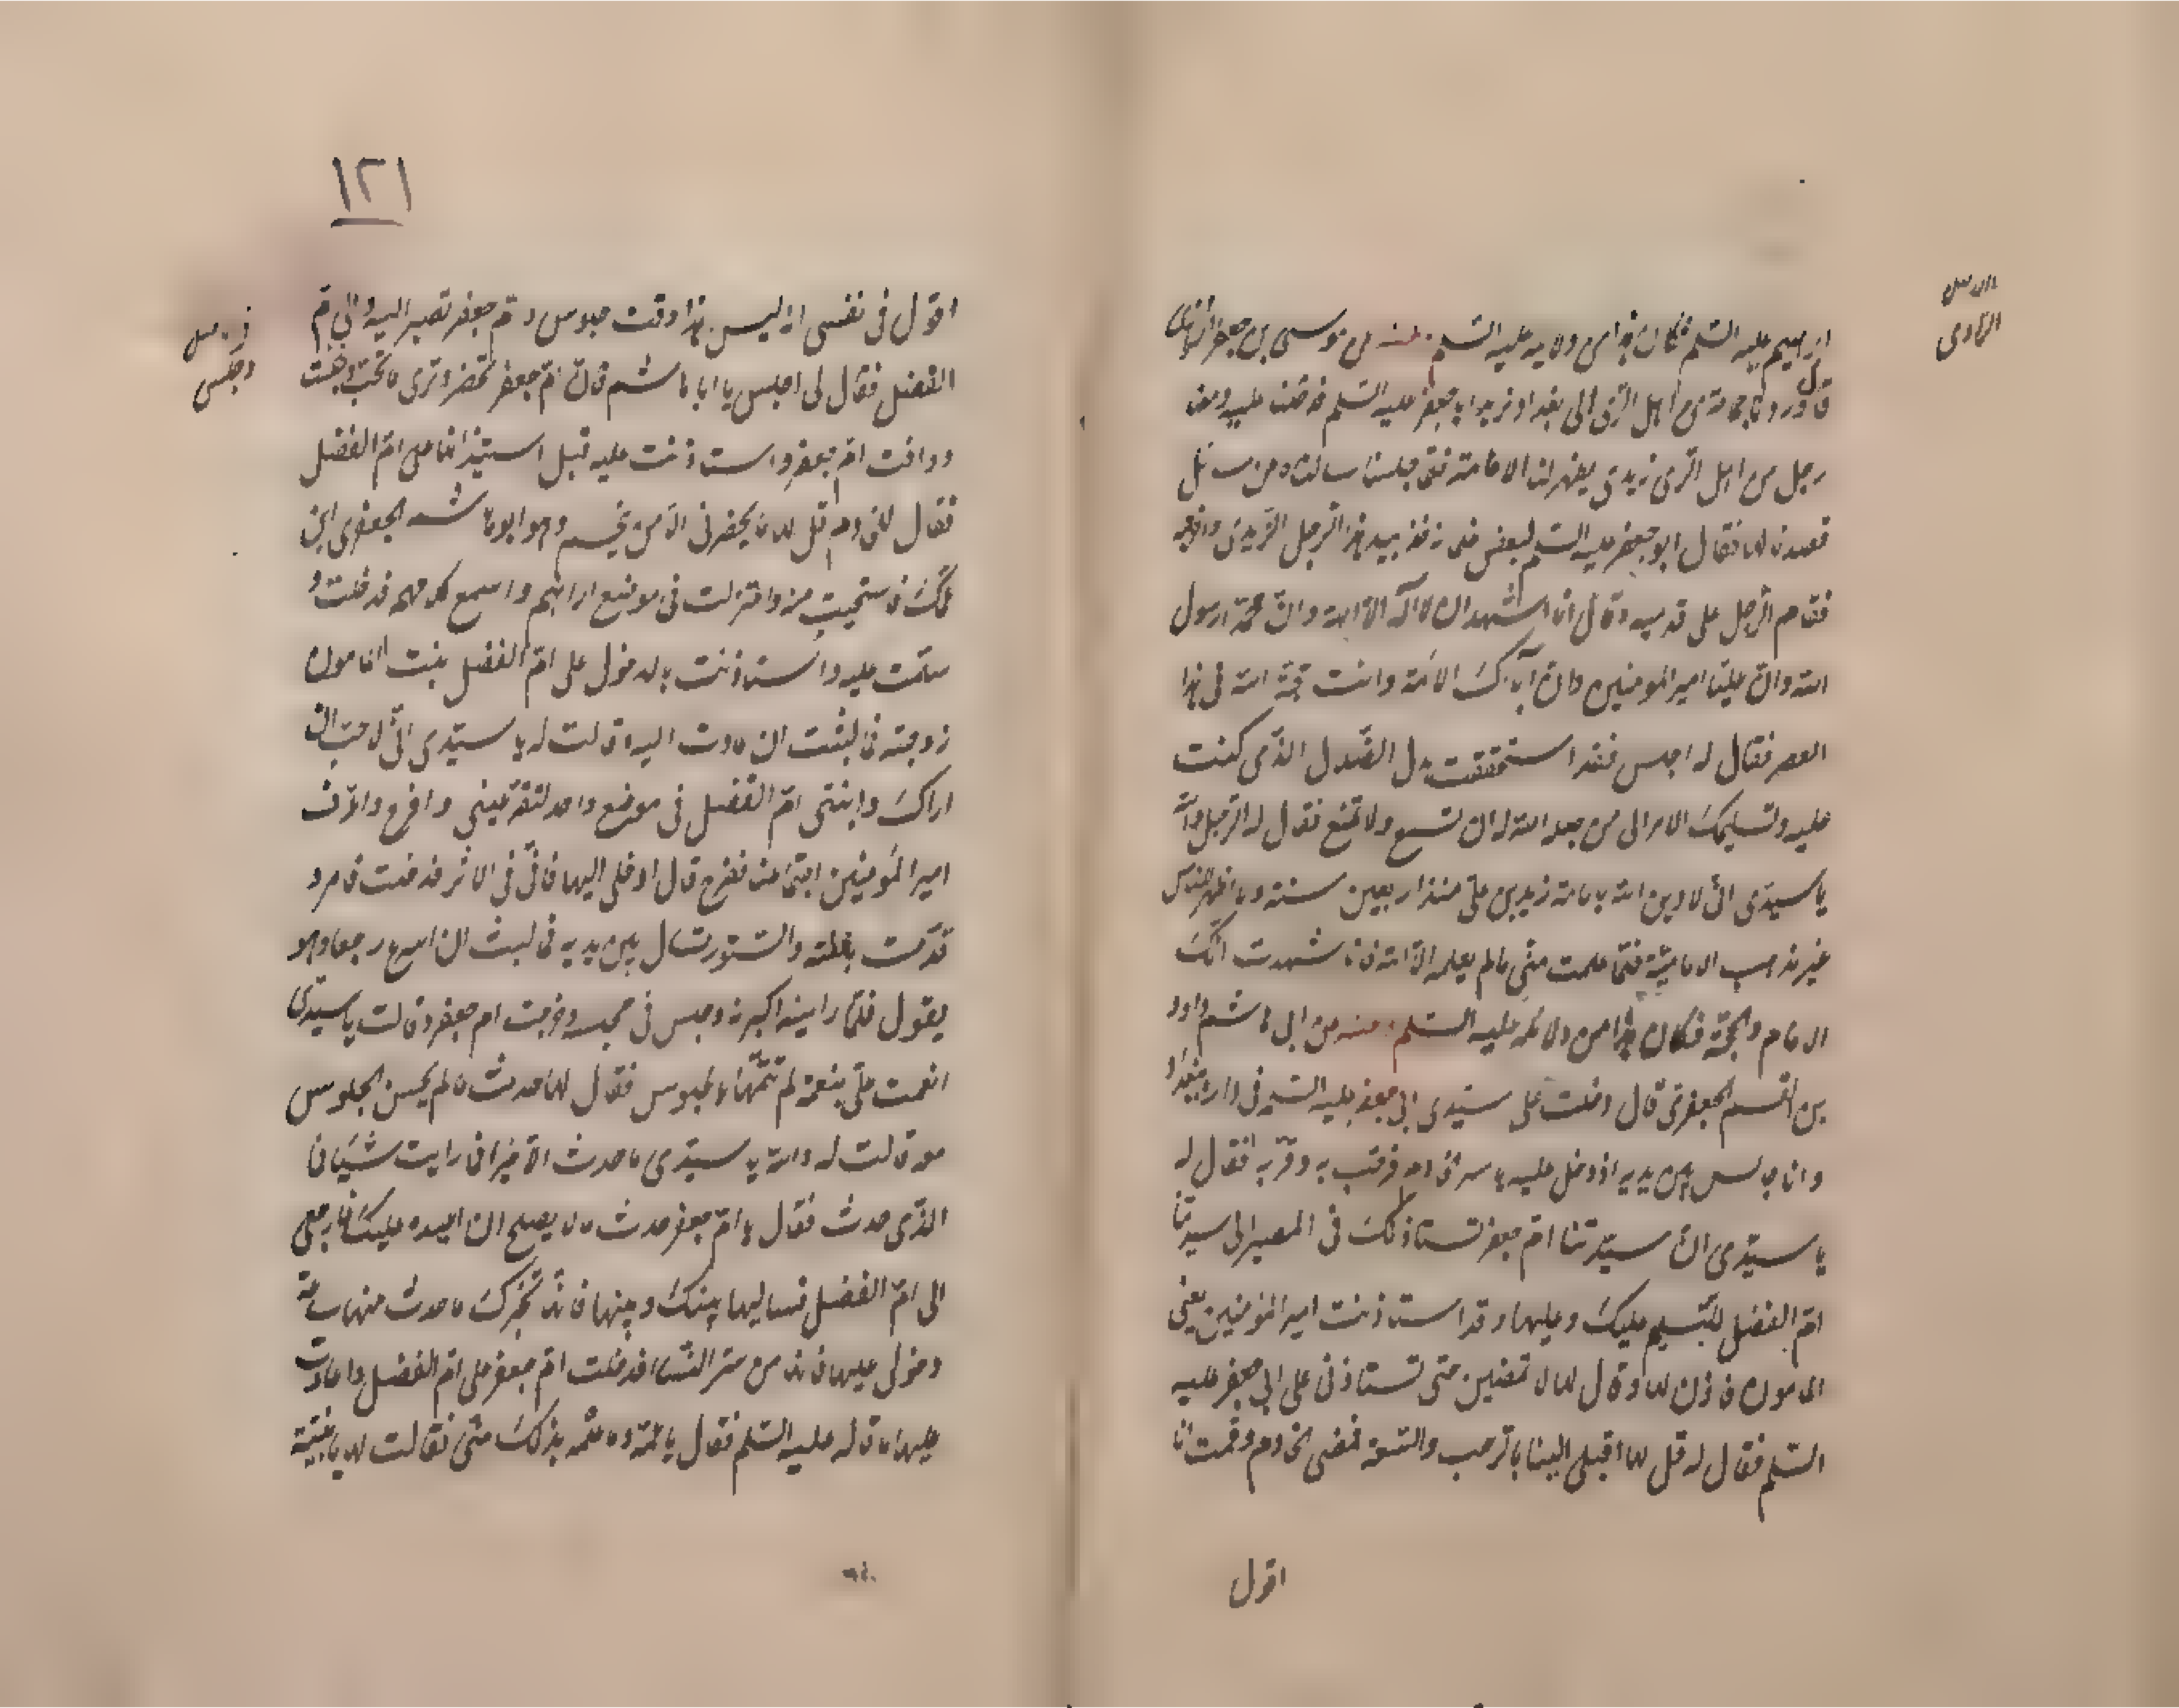 ابرهيم عليه السّلم فكان هذا من دلايله عليه السّلم، عنه عن موسى بن جعفر الرازى
قال وردنا جماعة من اهل الرّى الى بغداد نريد ابا جعفر عليه السّلم فدخلنا عليه ومعنا
رجل من اهل الرّى زيدى يظهر لنا الامامة فلمّا جلسنا سالناه عن مسائل
قصدنا لها فقال ابو جعفر عليه السّلم لبعض غلمانه خذ بيد هذا الرّجل الزّيدى واخرجه
فقام الرّجل على قدميه وقال انا اشهد ان لا اله الّا الله وانّ محمّدا رسول
الله وانّ عليّا امير المومنين وان آبائك الائمّة وانت حجّة الله فى هذا
العصر فقال له اجلس فقد استحققت بترك الضّلال الذّى كنت
عليه وتسليمك الامر الى من جعله الله له ان تسمع ولا تمنع فقال له الرّجل والله
يا سيدّى انّى لادين الله بامامة زيد بن علىّ منذ اربعين سنة وما اظهر للنّاس
غير مذهب الاماميّة فلمّا علمت منّى ما لم يعلمه الّا الله فانا شهدت انّك
الامام والحجّة فكان هذا من دلائله عليه السّلم، عنه عن ابى هاشم داود
بن القسم الجعفرى قال دخلت على سيّدى ابى جعفر عليه السّلم فى داره ببغداد
وانا جالس بين يديه اذ دخل عليه ياسر الخادم فرحّب به وقرّبه فقال له
يا سيّدى انّ سيّدتنا امّ جعفر تستاذنك فى المصير الى سيدتنا
امّ الفضل للتّسليم عليك وعليها وقد استاذنت امير المؤمنين يعنى
المامون فاذن لها وقال لها لا تمضين حتى تستاذنى على ابى جعفر عليه
السّلم فقال له قل لها اقبلى الينا بالرّحب والسّعة فمضى الخادم وقمت انا
اقول
١٢١
اقول فى نفسى انه ليس هذا وقت جلوس وامّ جعفر تصير اليه والى امّ
الفضل فقال لى اجلس يا ابا هاشم فانّ امّ جعفر تحضر وترى ما تحبّ فجلست
ووافت امّ جعفر واستاذنت عليه قبل استيذانها على امّ الفضل
فقال للخادم قل لها لا يحضرنى الّا من تحتشم وهو ابو هاشم الجعفرى ابن
عمّك فاستحييت منه واعتزلت فى موضع اراهم واسمع كلامهم فدخلت و
سلّمت عليه واستاذنت بالدخول على امّ الفضل بنت المامون
زوجته فما لبثت ان عادت اليه وقالت له يا سيّدى انّى لاحبّ ان
اراك وابنتى امّ الفضل فى موضع واحد لتقرّ عينى وافرح واعرّف
امير المؤمنين اجتماعكما فيفرح قال ادخلى اليها فانّى فى الاثر فدخلت فامر و
قدّمت بغلته والستور تشال بين يديه فما لبث ان اسرع راجعا وهو
يقول فلمّا راينه اكبرنه وجلس فى مجلسه وخرجت امّ جعفر وقالت يا سيدّى
انعمت علىّ بنعمة لم تتمّها بالجلوس فقال لها حدث ما لم يحسن الجلوس
معه قالت له والله يا سيّدى ما حدث الّا خير انى رايت شيئا فما
الذّى حدث فقال يا امّ جعفر حدث ما لا يصلح ان اعيده عليك فارجعى
الى امّ الفضل فساليها بينك وبينها فانها تخبرك ما حدث منها ساعة
دخولى عليها فانه من سرّ النّساء فدخلت امّ جعفر على امّ الفضل واعادت
عليها ما قاله عليه السّلم فقال يا عمّة وما علمه بذلك منّى فقالت لها يا بنيّة